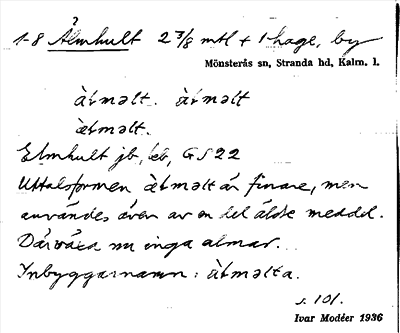 1-8 Älmhult 2 3/8 mtl + 1 hage, by
Mönsterås sn, Stranda hd, Kalm. l.
àƚməlt. àƚməlt
æ̀ƚməlt.
Elmhult jb, GS 22
Uttalsformen æ̀ƚməlt är finare, men
användes även av en del äldre meddel.
Där växa nu inga almar.
Inbyggarnamn: àƚməlta.
s. 101.
Ivar Modéer 1936